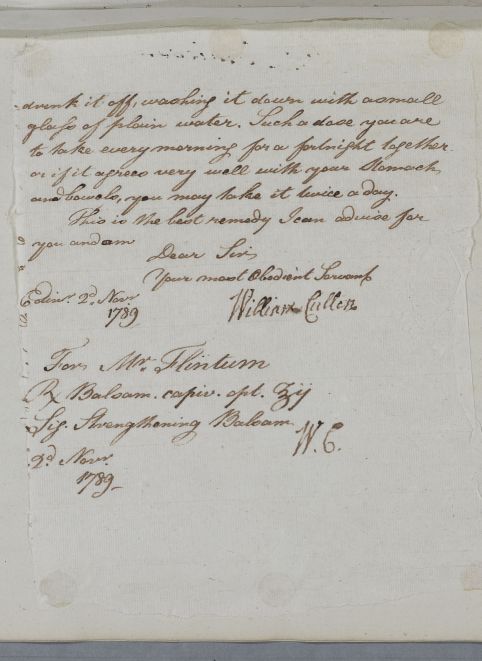 drink it off, washing it down with a small
glass of plain water. Such a dose you are
to take every morning for a fortnight together
or if it agrees very well with your Stomach
and bowels, you may take it twice a day.
This is the best remedy I can advise for
you and am
Dear Sir
Your most Obedient Servant
Edinr. 2d. Novr. William Cullen
1789
For Mr. Flintum
℞ Balsam. capiv. opt. ʒij
Sig. Strengthening Balsam
W. C.
2d. Novr.
1789